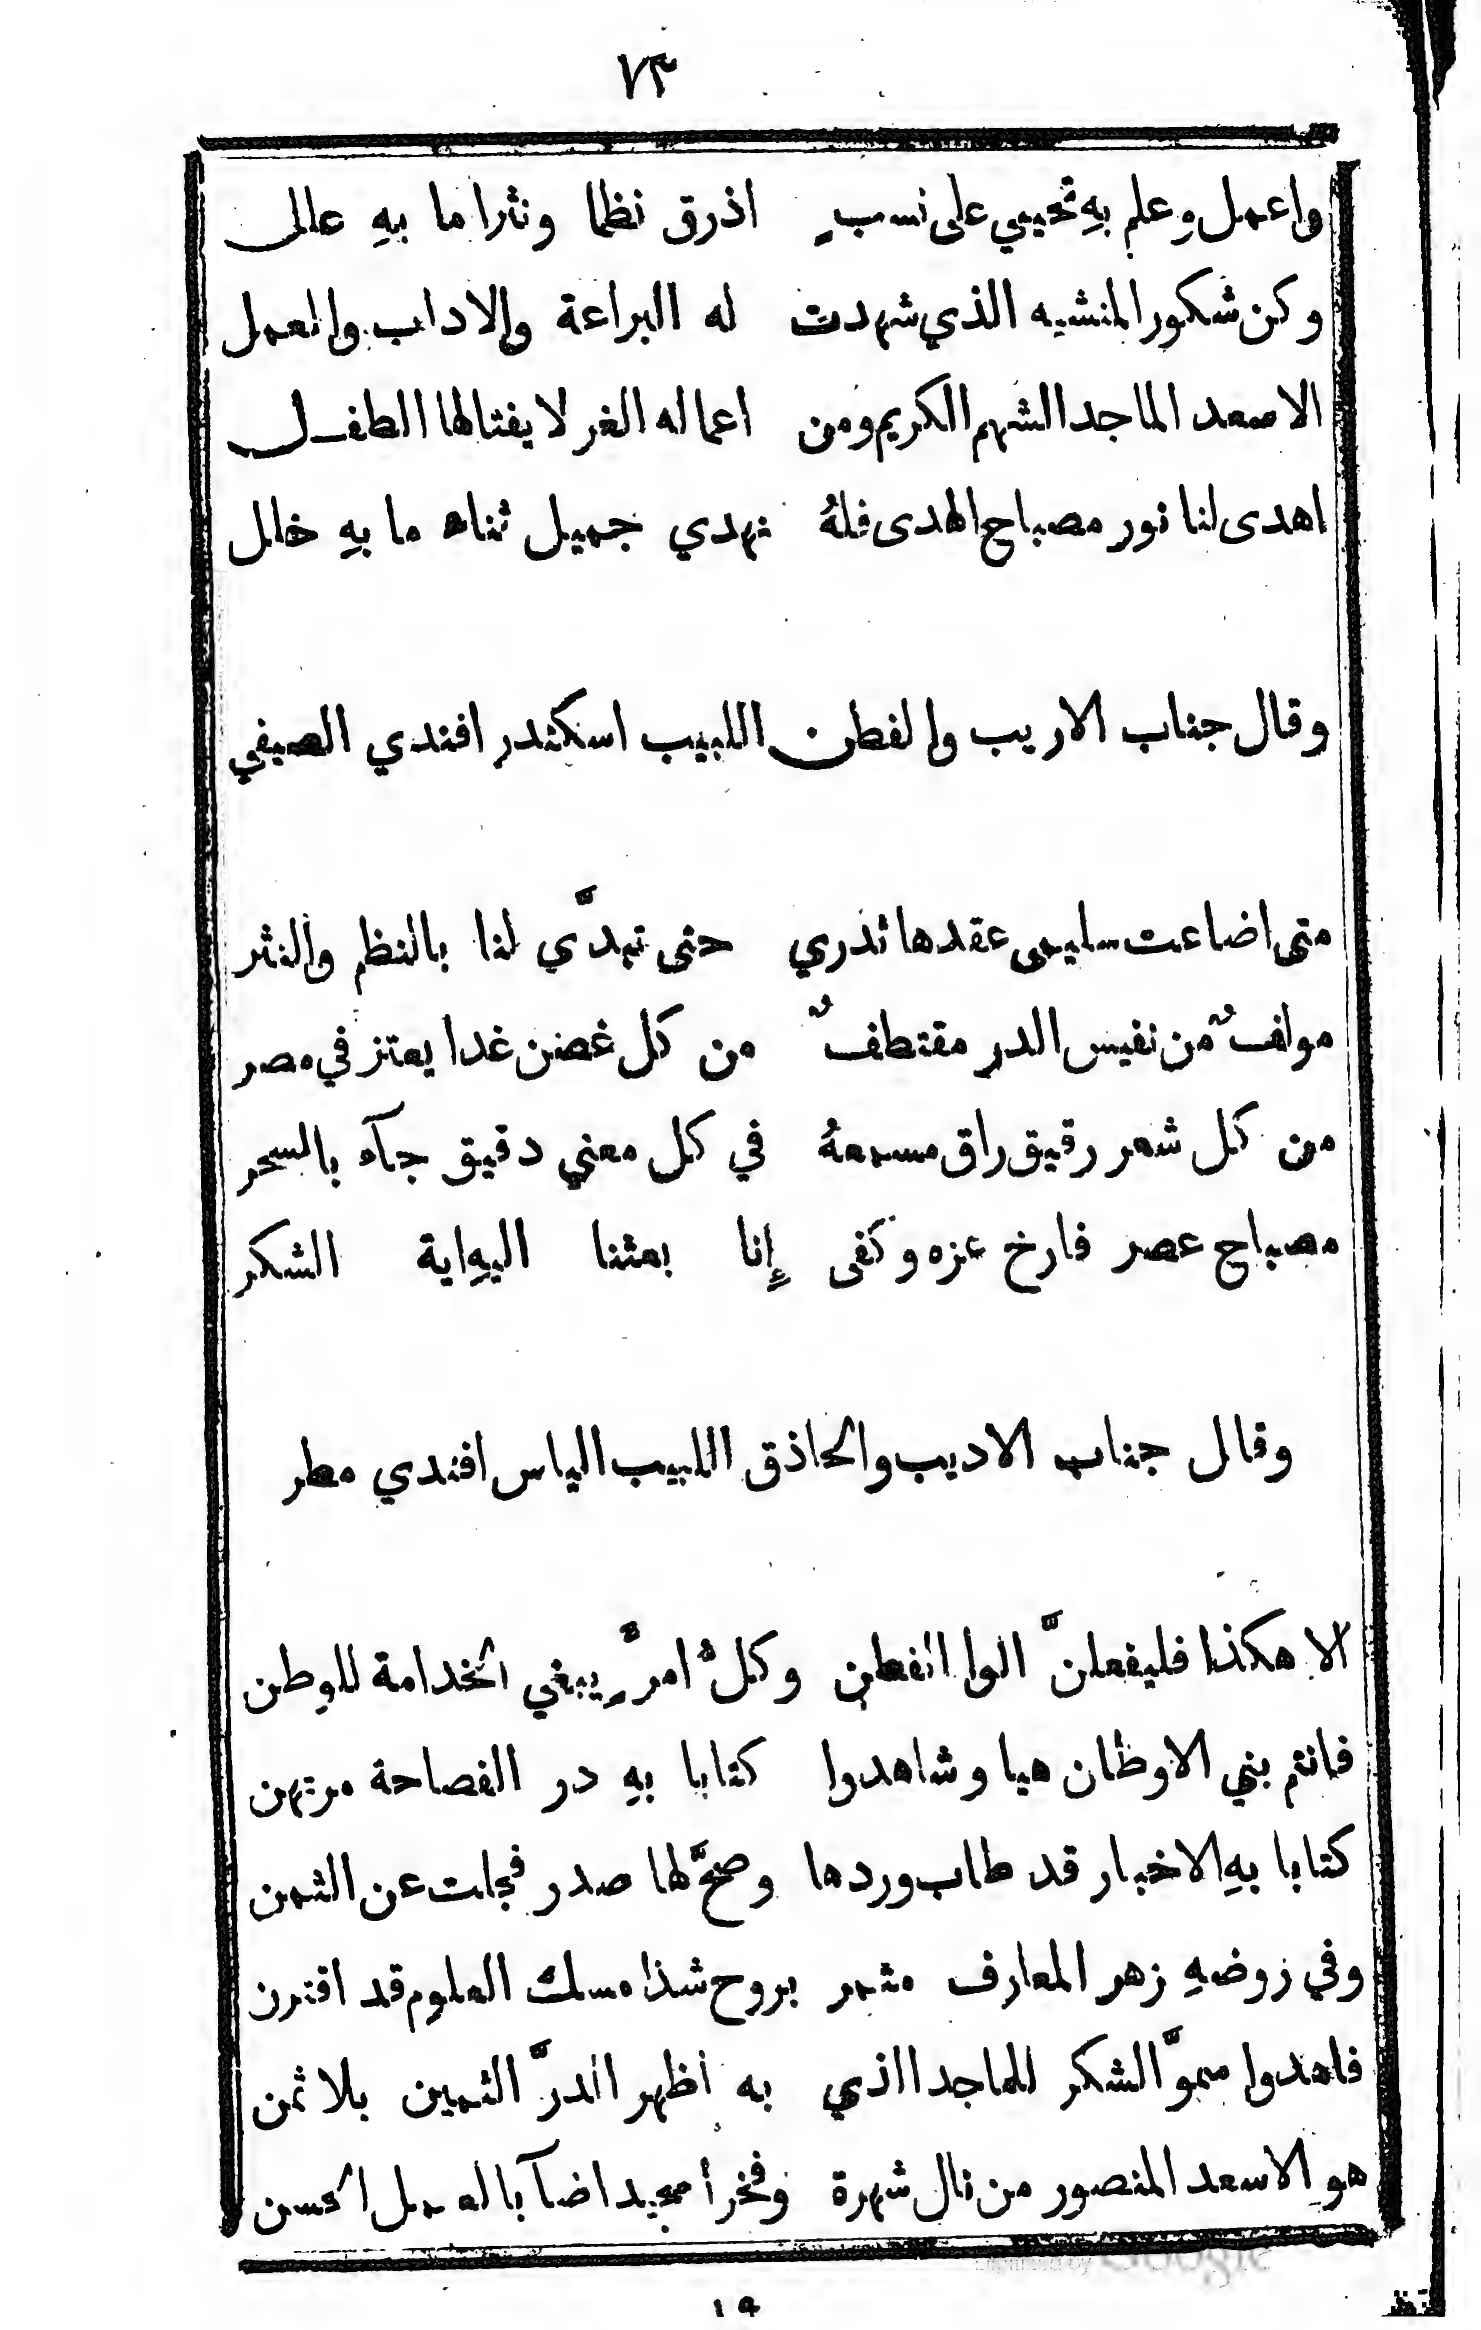 ٧٣
واعمل وعلم بهِ تحيي على نسبٍ اذرق نظما ونثرا ما بهِ عالل
وكن شكور المنشيه الذي شهدت له البراعة والاداب والعمل
الاسعد الماجد الشهم الكريم ومن اعماله الغر لا يغتالها الطفل
اهدى لنا نور مصباح الهدى فلهُ نهدي جميل ثناه ما بهِ خلل
وقال جناب الاريب والفطن اللبيب اسكندر افندي الصيفي
متى اضاعت سليمى عقدها تدري حتى تبدَّي لنا بالنظم والنثر
مولفٌ من نفيس الدر مقتطفٌ من كل غصن غدا يعتز في مصر
من كل شعر رقيق راق مسمعهُ في كل معني دقيق جآه بالسحر
مصباح عصر فارخ عزه وكفى إنا بعثنا اليهِ اية الشكر
وقال جناب الاديب والحاذق اللبيب الياس افندي مطر
الا هكذا فليفعلنَّ الوا الفطن وكلُّ امرٍّ يبغي الخدامة للوطن
فانتم بني الاوطان هيا وشاهدوا كتابا بهِ در الفصاحة مرتهن
كتابا بهِ الاخبار قد طاب وردها وصحَّ لها صدر فجلت عن الثمن
وفي روضهِ زهر المعارف مثمر بروح شذا مسك العلوم قد اقترن
فاهدوا سموَّ الشكر للماجد الذي به اظهر الدرَّ الثمين بلا ثمن
هو الاسعد المنصور من نال شهرة وفخرأ مجيدا ضآ بالعمل الحسن
١٩